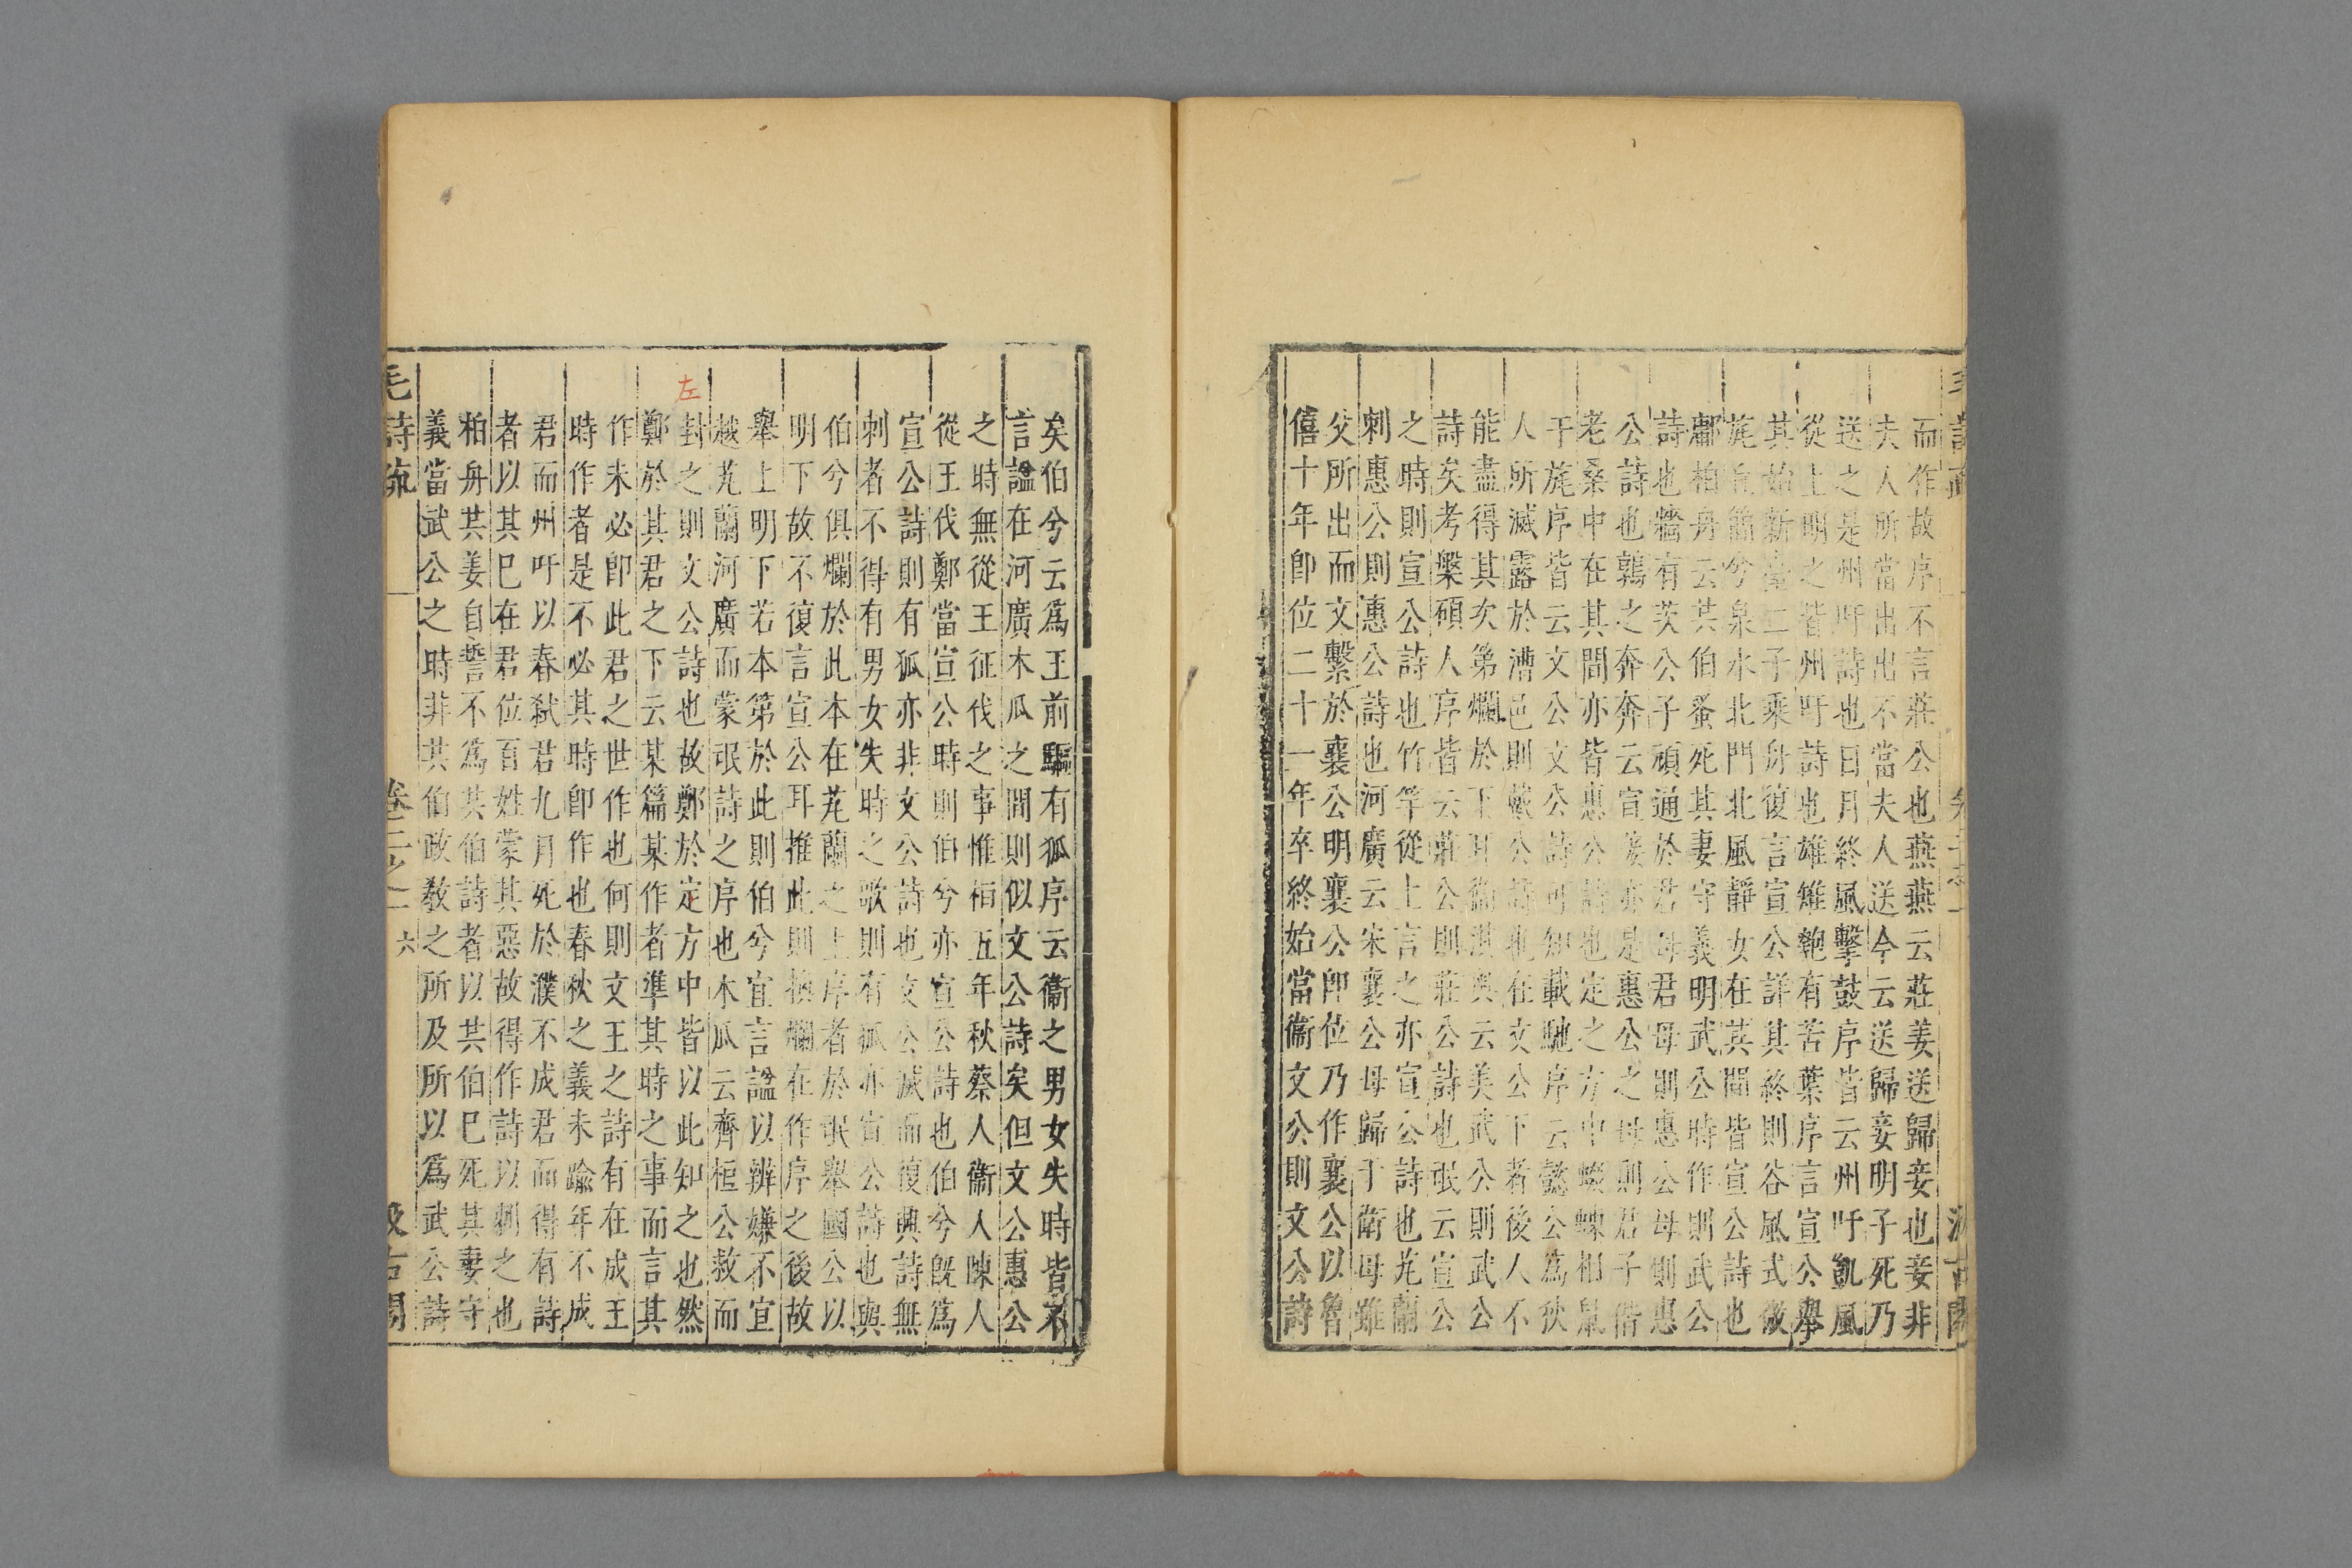 毛詩疏 卷二之一 汲古閣
而作故序不言莊公也燕燕云莊姜送歸妾也妾非
夫人所當出出不當夫人送今云送歸妾明子死乃
送之是州吁詩也日月終風擊鼓序皆云州吁凱風
從上明之皆州吁詩也雄雉匏有苦葉序言宣公舉
其始新臺二子乘舟復言宣公詳其終則谷風式微
旄丘簡兮泉水北門北風靜女在其間皆宣公詩也
鄘柏舟云共伯蚤死其妻守義明武公時作則武公
詩也牆有茨公子頑通於君母君母則惠公母則惠
公詩也鶉之奔奔云宣姜亦是惠公之母則君子偕
老桑中在其間亦皆惠公詩也定之方中蝃蝀相鼠
干旄序皆云文公文公詩可知載馳序云懿公爲狄
人所滅露於漕邑則戴公詩也在文公下者後人不
能盡得其次第爛於下耳衞淇奥云美武公則武公
詩矣考槃碩人序皆云莊公則莊公詩也氓云宣公
之時則宣公詩也竹竿從上言之亦宣公詩也芄蘭
刺惠公則惠公詩也河廣云宋襄公母歸于衛母雖
父所出而文繫於襄公明襄公卽位乃作襄公以魯
僖十年卽位二十一年卒終始當衞文公則文公詩
矣伯兮云爲王前驅有狐序云衞之男女失時皆不
言諡在河廣木瓜之間則似文公詩矣但文公惠公
之時無從王征伐之事惟桓五年秋蔡人衞人陳人
從王伐鄭當宣公時則伯兮亦宣公詩也伯兮旣爲
宣公詩則有狐亦非文公詩也文公滅而復興詩無
刺者不得有男女失時之歌則有狐亦宣公詩也與
伯兮俱爛於此本在芄蘭之上序者於氓舉國公以
明下故不復言宣公耳推此則換爛在作序之後故
舉上明下若本第於此則伯兮宜言諡以辨嫌不宜
越芄蘭河廣而蒙氓詩之序也木瓜云齊桓公救而
左
封之則文公詩也故鄭於定方中皆以此知之也然
鄭於其君之下云某篇某作者準其時之事而言其
作未必卽此君之世作也何則文王之詩有在成王
時作者是不必其時卽作也春秋之義未踰年不成
君而州吁以春弒君九月死於濮不成君而得有詩
者以其巳在君位百姓蒙其惡故得作詩以刺之也
柏舟共姜自誓不爲共伯詩者以共伯巳死其妻守
義當武公之時非共伯政敎之所及所以爲武公詩
毛詩疏 卷二之一 六 汲古閣